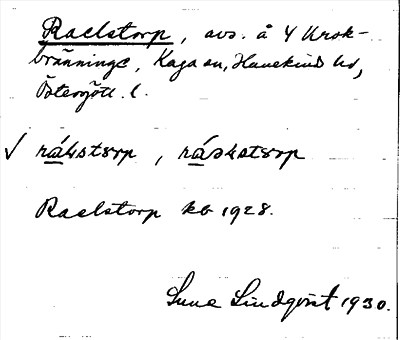 Raelstorp, avs. å 4 Krok-
bränninge, Kaga sn, Hanekind hd,
Östergötl. l.
√ rá4st8rp, rá24st8rp
Raelstorp kb 1928.
Sune Lindqvist 1930.